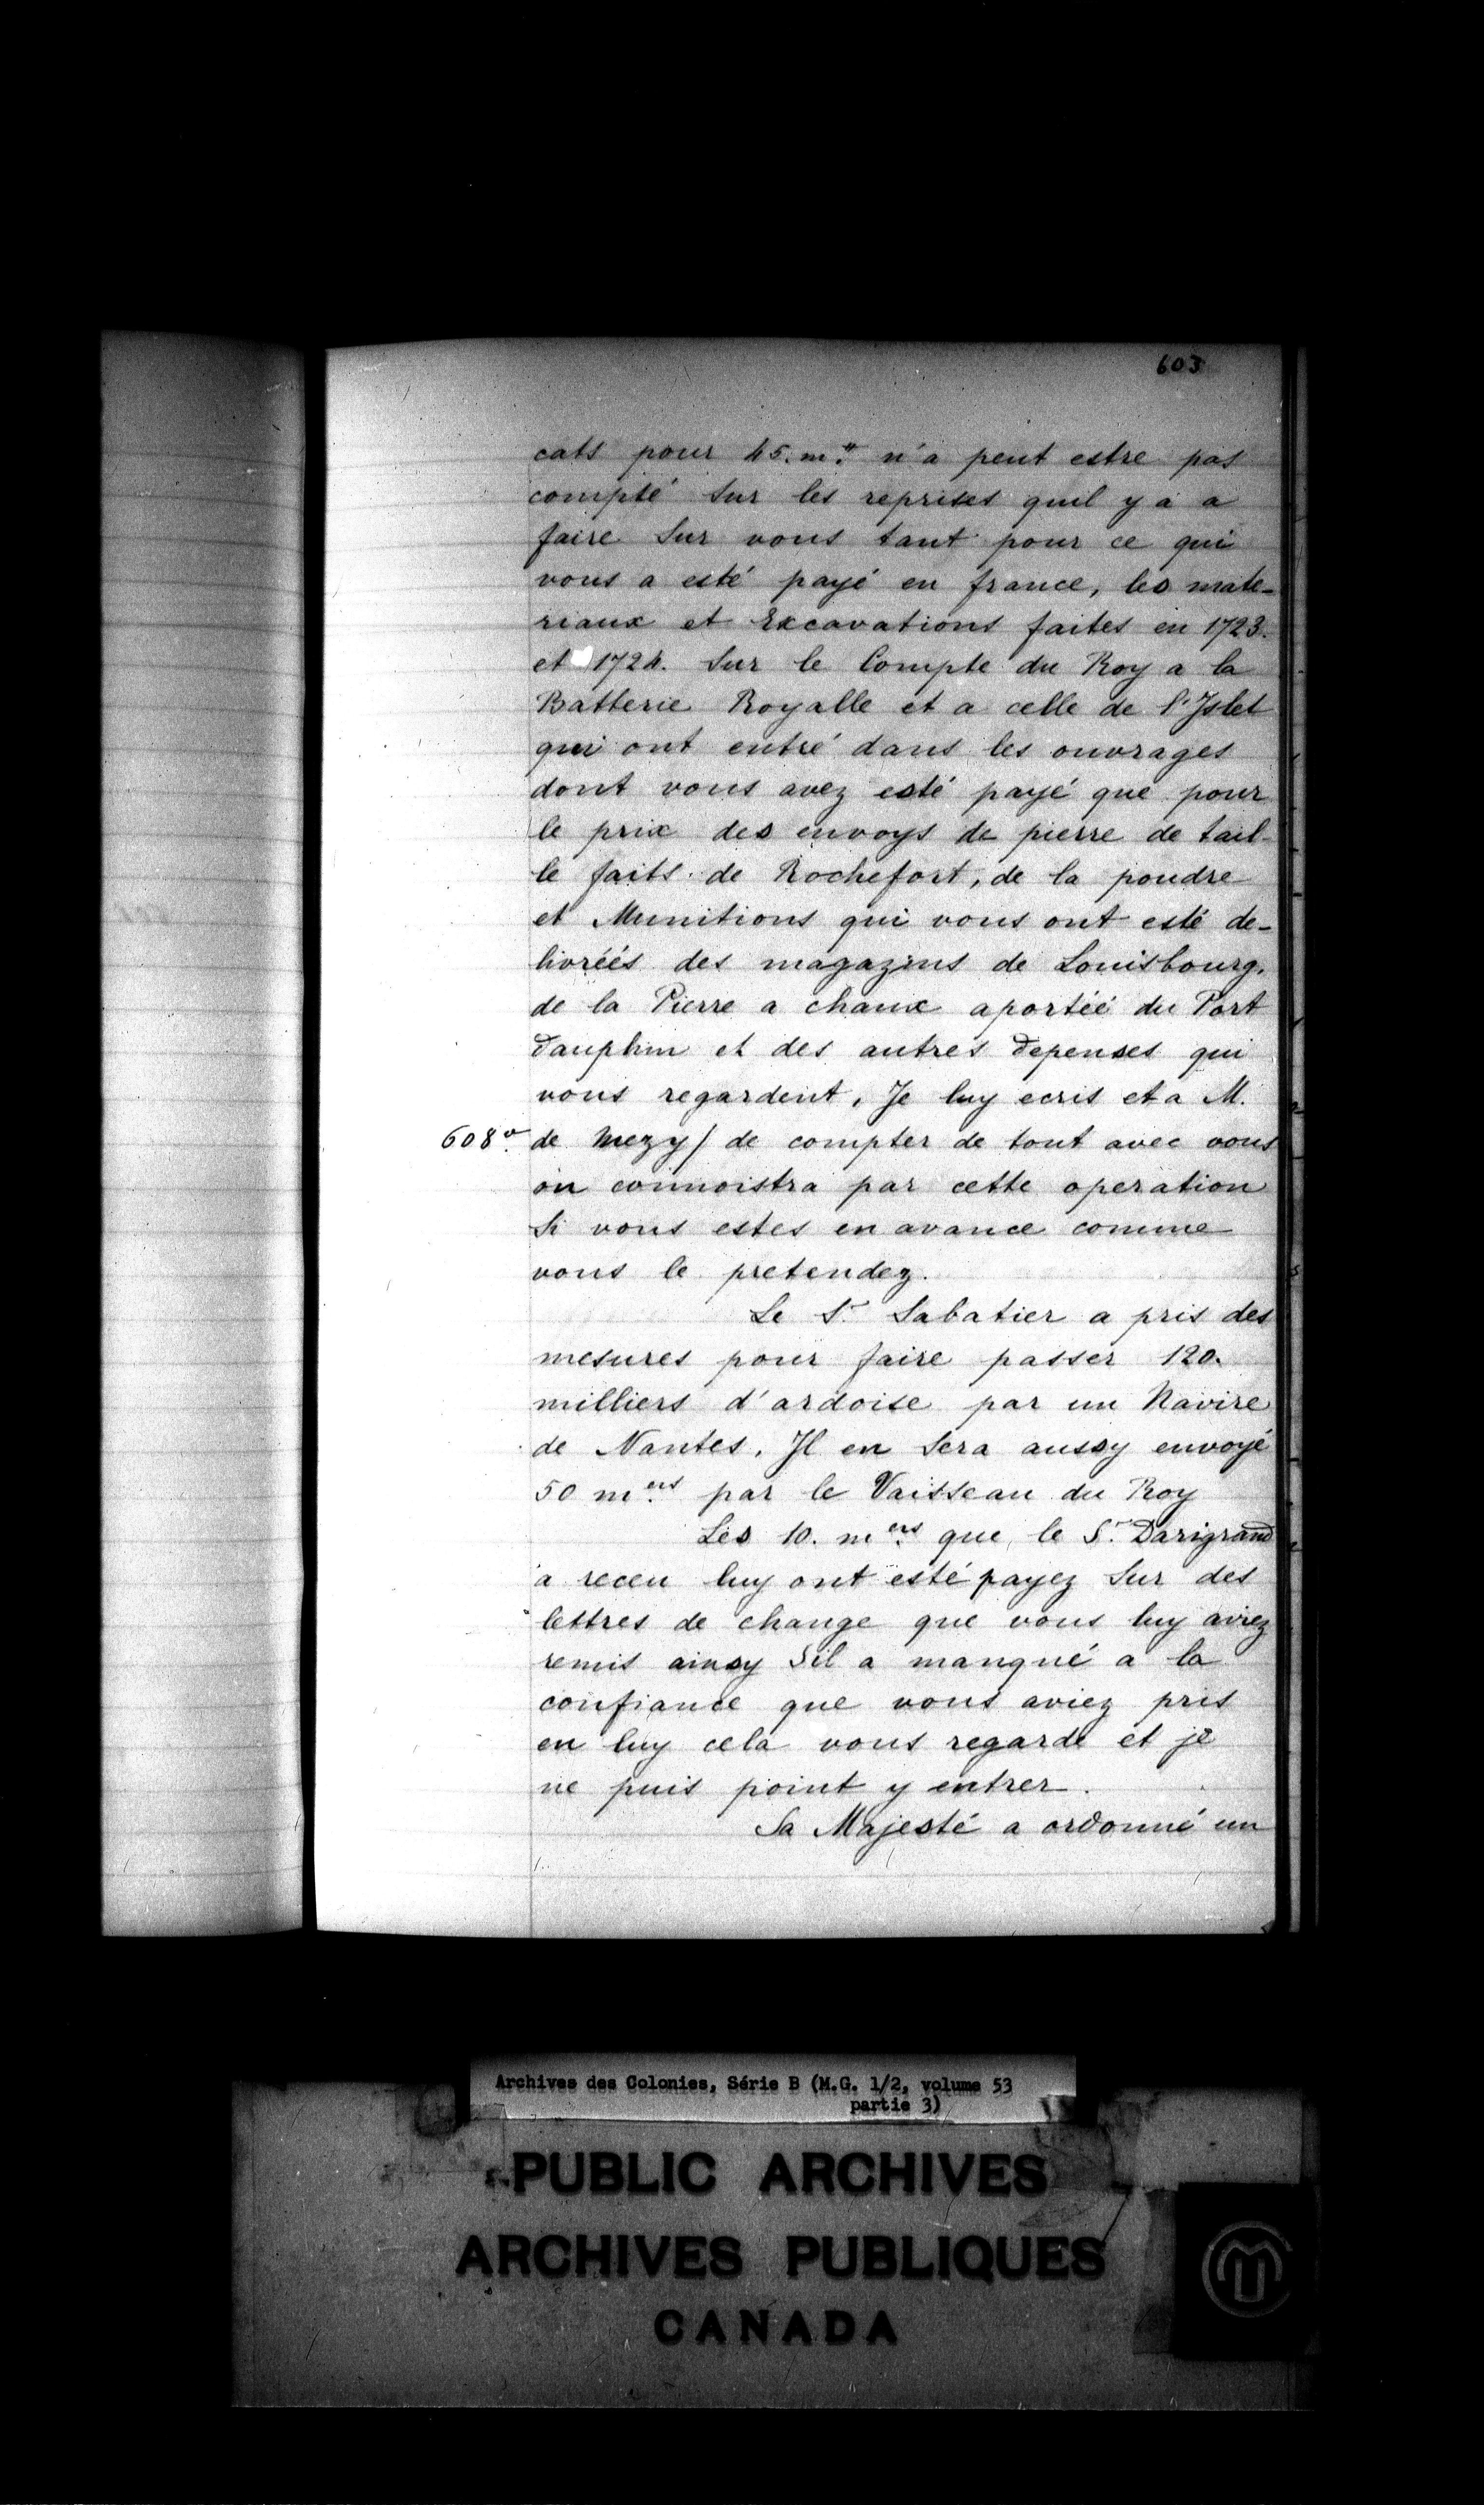 603
cats pour 45. m.# n'a peut estre pas
compté sur les reprises quil y a a
faire sur vous tant pour ce qui
vous a esté payé en france, les mate-
riaux et Excavations faites en 1723.
et 1724. sur le Compte du Roy a la
Batterie Royalle et a celle de l'Islet
qui ont entré dans les ouvrages
dont vous avez esté payé que pour
le prix des envoys de pierre de tail-
le faits de Rochefort, de la poudre
et Munitions qui vous ont esté de-
livréés des magazins de Louisbourg,
de la Pierre a chaux aportéé du Port
Dauphin et des autres Depenses qui
vous regardent, Je luy ecris et a M.
608vo. de Mezy/ de compter de tout avec vous
on connoistra par cette operation
si vous estes en avance comme
vous le pretendez.
Le Sr. Sabatier a pris des
mesures pour faire passer 120.
milliers d'ardoise par un Navire
de Nantes, Il en sera aussy envoyé
50 m.ers par le Vaisseau du Roy
Les 10. m.ers que le Sr. Darigrand
a receu luy ont esté payez sur des
lettres de change que vous luy aviez
remis ainsy Sil a manqué a la
confiance que vous aviez pris
en luy cela vous regarde et je
ne puis point y entrer.
Sa Majesté a ordonné un
Archives des Colonies, Série B (M.G. 1/2, volume 53
partie 3)
PUBLIC ARCHIVES
ARCHIVES PUBLIQUES
CANADA